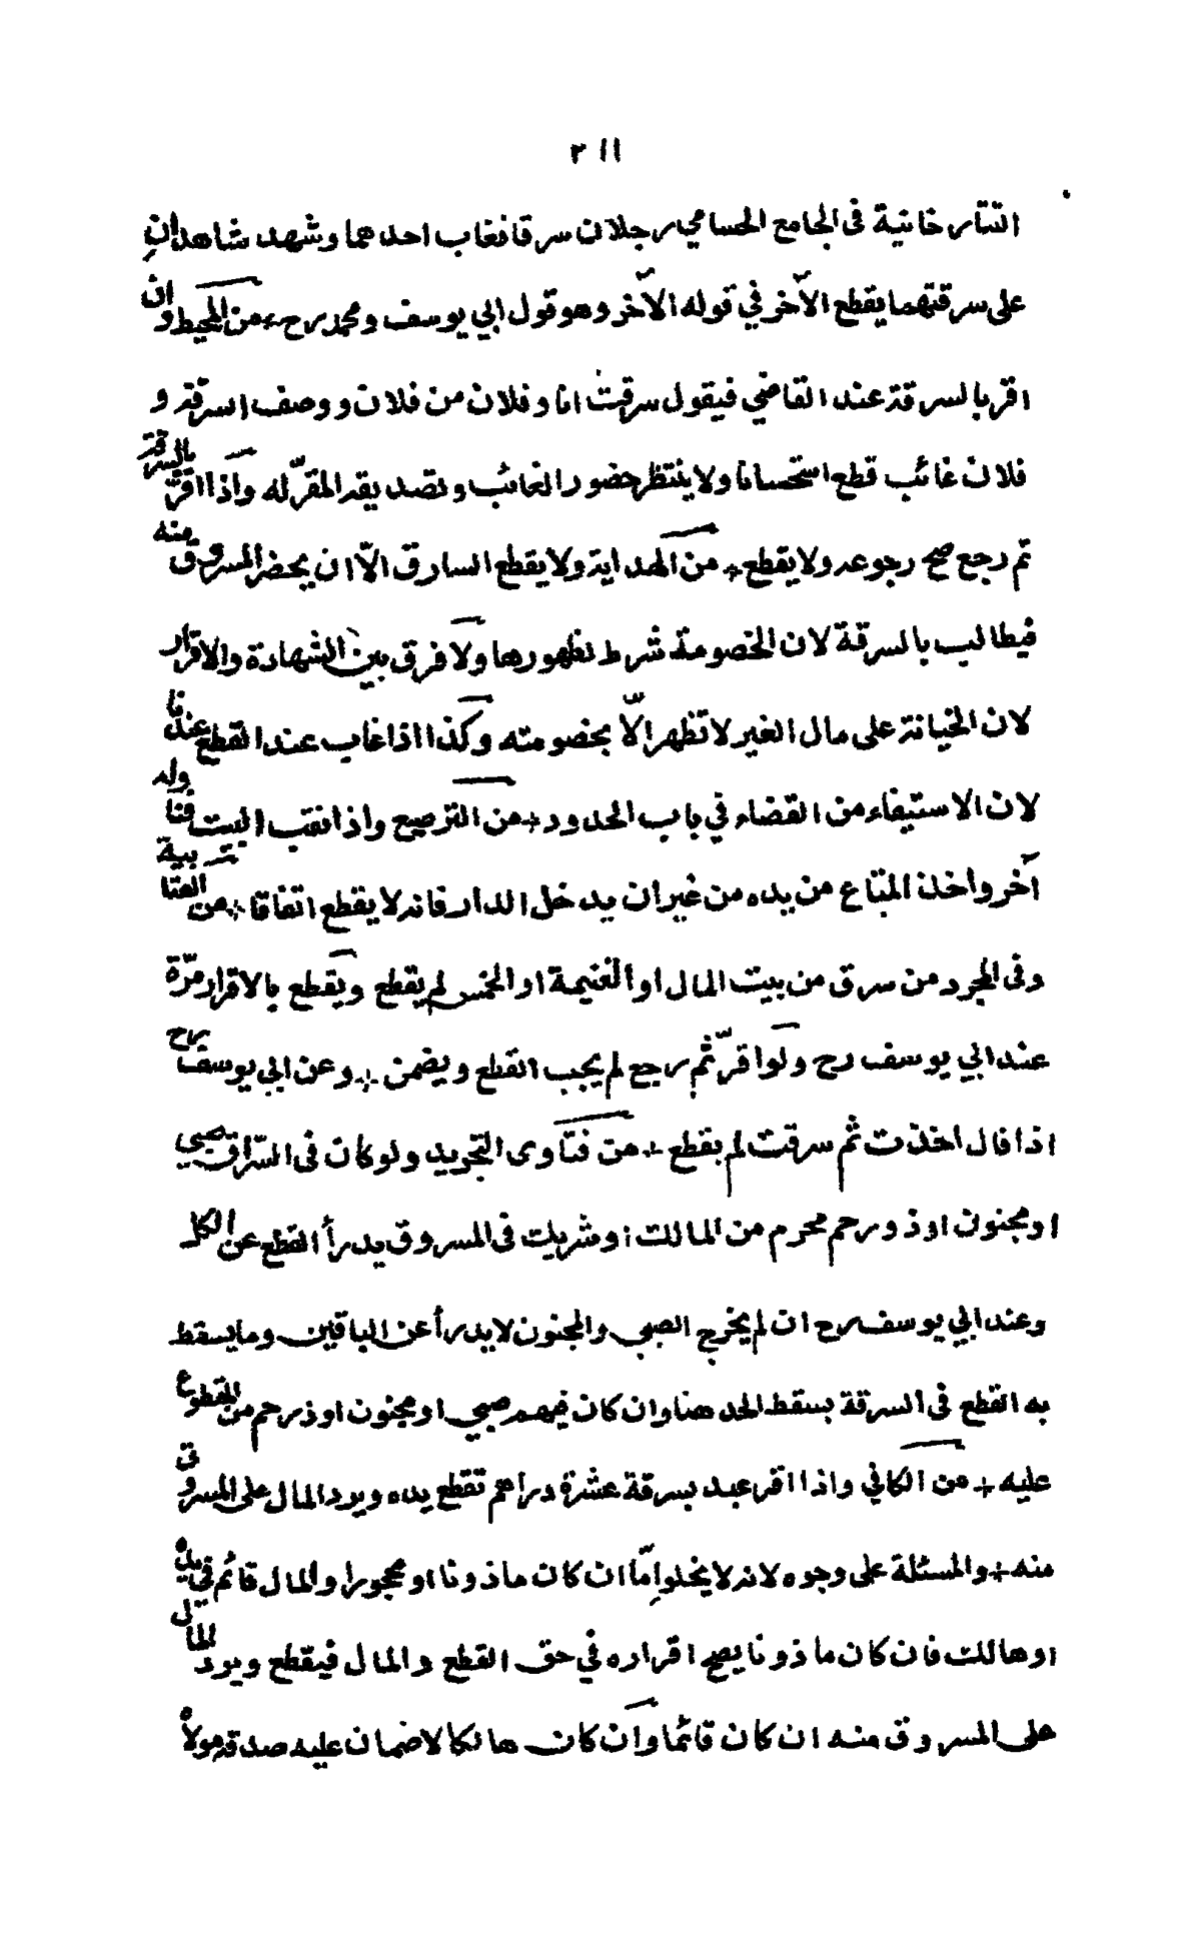 ٣١١
التتارخانية فى الجامع الحسامي رجلان سرقا فغاب احدهما وشهد شاهدان
على سرقتهما يقطع الآخر في قوله الآخر وهو قول ابي يوسف ومحمد رح + من المحيط وان
اقر بالسرقة عند القاضي فيقول سرقت انا وفلان من فلان ووصف السرقة و
فلان غائب قطع استحسانا ولا ينتظر حضور الغائب وتصديقه المقرّ له واذا اقرّ بالسرقة
ثم رجع صح رجوعه ولا يقطع + من الهداية ولا يقطع السارق الّا ان يحضر المسروق منه
فيطالب بالسرقة لان الخصومة شرط لظهورها ولا فرق بين الشهادة والاقرار
لان الخيانة على مال الغير لا تظهر الّا بخصومته وكذا اذا غاب عند القطع عندنا
لان الاستيفاء من القضاء في باب الحدود + من الترصيع واذا نقب البيت فناوله
آخر واخذ المتاع من يده من غير ان يدخل الدار فانه لا يقطع اتفاقا + من العتابية
وفى المجرد من سرق من بيت المال او الغنيمة او الخمس لم يقطع ويقطع بالاقرار مرّة
عند ابي يوسف رح ولو اقرّ ثم رجع لم يجب القطع ويضمن + وعن ابي يوسف رح
اذا قال اخذت ثم سرقت لم يقطع + من فتاوى التجريد ولو كان فى السّراق صبي
او مجنون او ذو رحم محرم من المالك او شريك فى المسروق يدرأ القطع عن الكل
وعند ابي يوسف رح ان لم يخرج الصبي والمجنون لا يدرأ عن الباقين وما يسقط
به القطع فى السرقة يسقط الحد هنا وان كان فيهم صبي او مجنون او ذ رحم من المقطوع
عليه + من الكافي واذا اقر عبد بسرقة عشرة دراهم تقطع يده ويرد المال على المسروق
منه + والمسئلة على وجوه لانه لا يخلو امّا ان كان ماذونا او محجورا والمال قائم في يده
او هالك فان كان ماذونا يصح اقراره في حق القطع والمال فيقطع ويرد المال
على المسروق منه ان كان قائما وان كان هالكا لا ضمان عليه صدقه مولاه